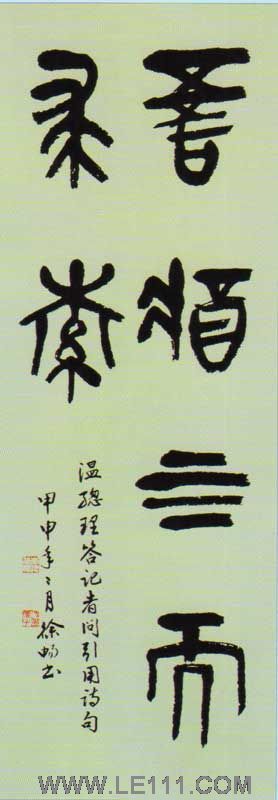 吾將上下而
求索
温總理答记者问引用诗句
甲申年二月徐畅书
WWW.LE111.COM